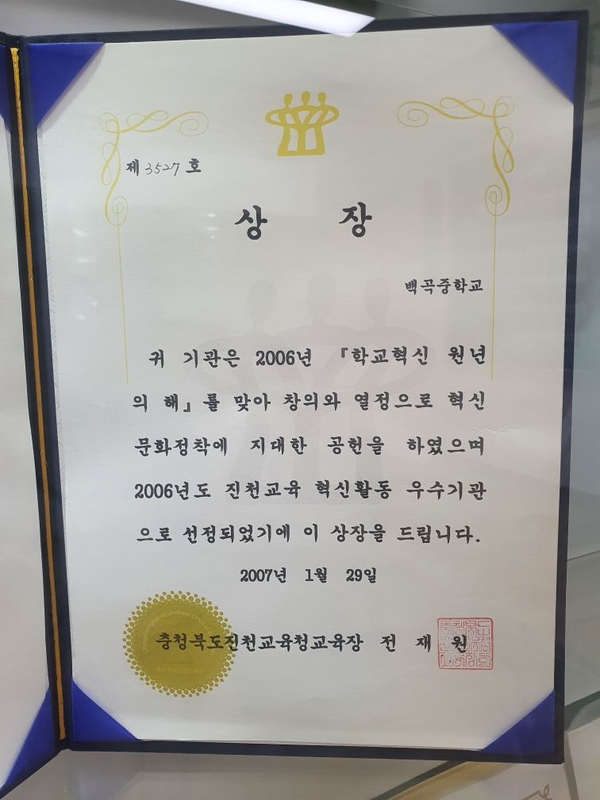 제 3527 호
상 장
백곡중학교
귀 기관은 2006년 『학교혁신 원년
의 해』를 맞아 창의와 열정으로 혁신
문화정착에 지대한 공헌을 하였으며
2006년도 진천교육 혁신활동 우수기관
으로 선정되었기에 이 상장을 드립니다.
2007년 1월 29일
충청북도진천교육청교육장 전 재 원